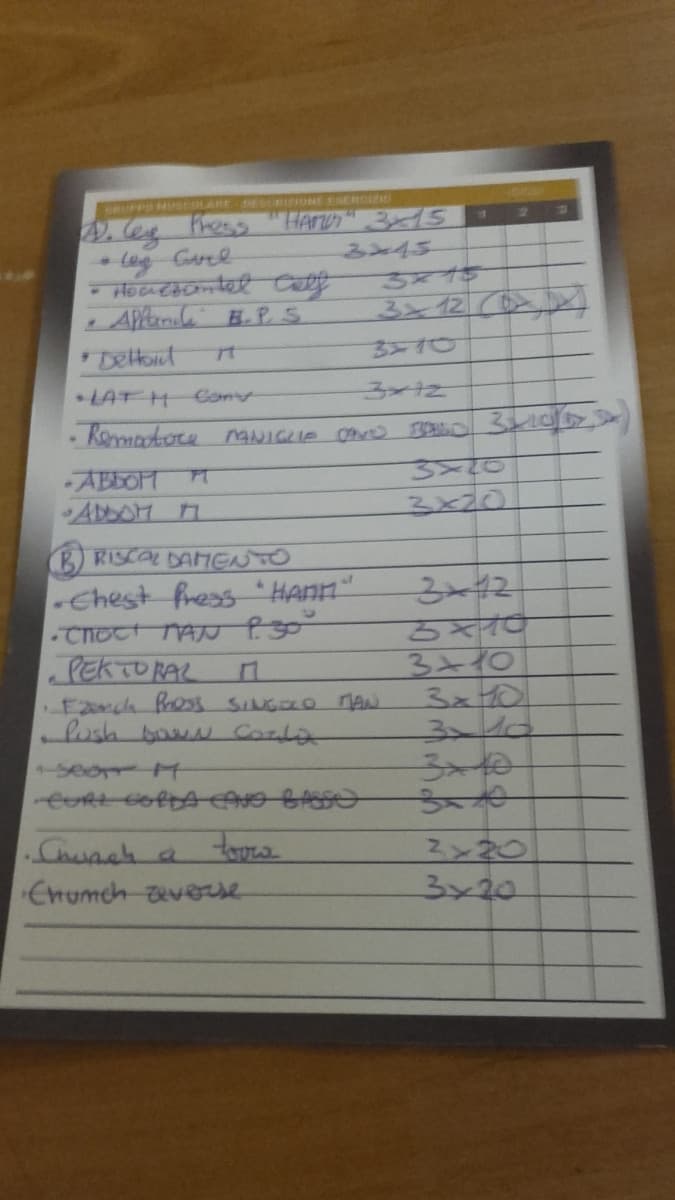 GRUPPO MUSCOLARE - DESCRIZIONE ESERCIZIO
1 2 3
A). Leg Press "HAMM" 3x15
• Leg Curl 3x15
• Horizontal Calf 3x15
• Affondi B.P.S 3x12 (DX, SX)
• Deltoid M 3x10
• LAT M Conv 3x12
• Rematore MANIGLIA CAVO BASSO 3x10 (DX, SX)
• ABDOM M 3x20
• ADDOM M 3x20
B) RISCALDAMENTO
• Chest Press "HAMM" 3x12
• CROCI MAN P.30° 3x10
• PEKTORAL M 3x10
• French Press SINGOLO MAN 3x10
• Push DOWN Corda 3x10
• M 3x10
• CURL CORDA CAVO BASSO 3x10
• Crunch a terra 3x20
• Crunch reverse 3x20